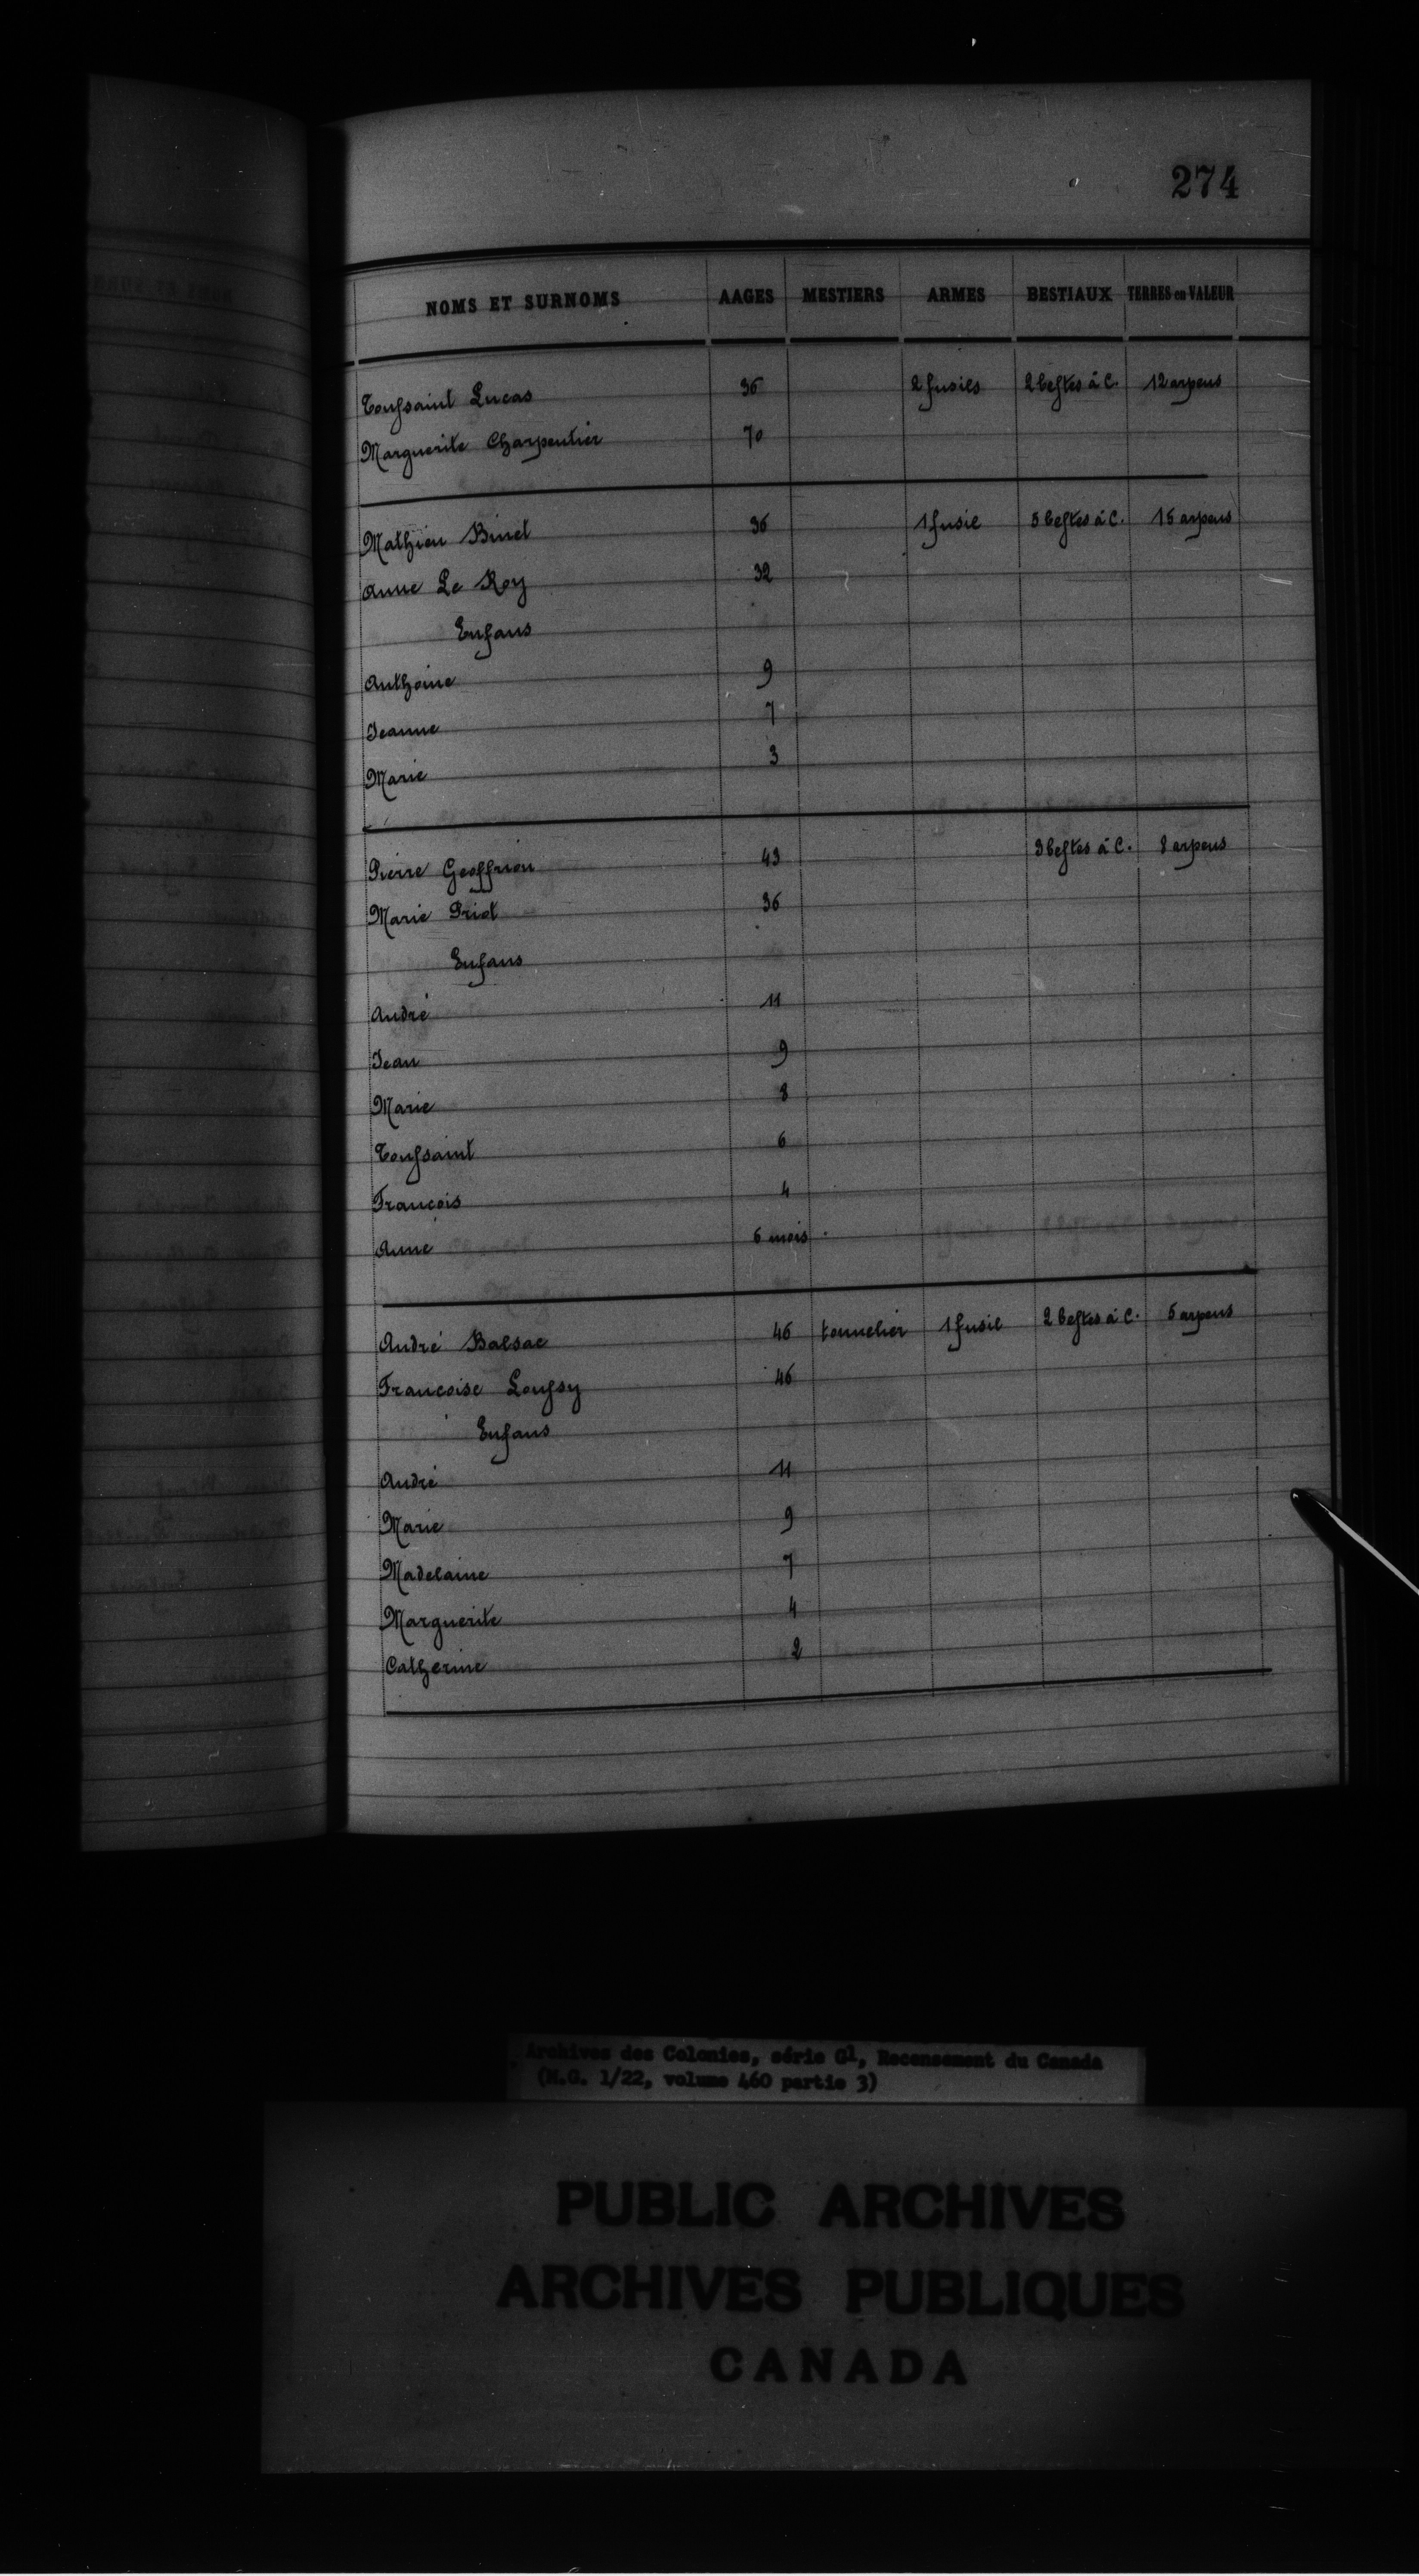 274
NOMS ET SURNOMS AAGES MESTIERS ARMES BESTIAUX TERRES en VALEUR
Toussaint Lucas 36 2 fusils 2 bestes à C. 12 arpens
Marguerite Charpentier 70
Mathieu Binet 36 1 fusil 5 bestes à C. 15 arpens
Anne Le Roy 32
Enfans
Anthoine 9
Jeanne 7
Marie 3
Pierre Geoffrion 43 3 bestes à C. 8 arpens
Marie Priot 36
Enfans
André 11
Jean 9
Marie 8
Toussaint 6
Francois 4
Anne 6 mois
André Balsac 46 tonnelier 1 fusil 2 bestes à C. 5 arpens
Francoise Loussy 46
Enfans
André 11
Marie 9
Madelaine 7
Marguerite 4
Catherine 2
Archives des Colonies, série G1, Recensement du Canada
(M.G. 1/22, volume 460 partie 3)
PUBLIC ARCHIVES
ARCHIVES PUBLIQUES
CANADA